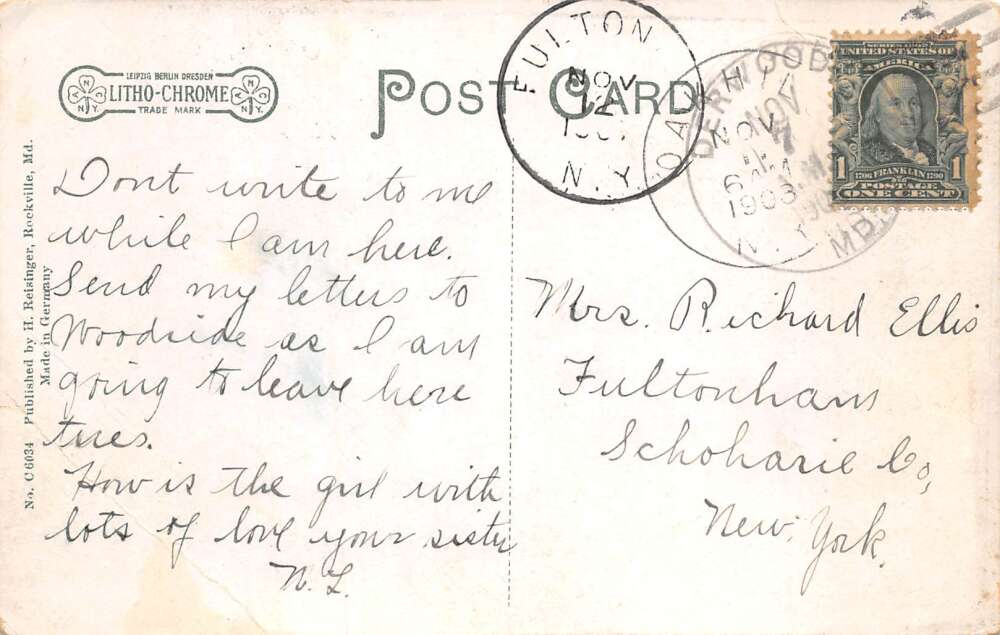 LEIPZIG BERLIN DRESDEN
LITHO-CHROME
TRADE MARK
A N C
N.Y.
A N C
N.Y.
POST CARD
FULTON
NOV
12
N.Y.
DERWOOD
NOV
MD.
NOV
6 AM
1908
N.Y.
SERIES 1902
UNITED STATES OF
AMERICA
1 1706 FRANKLIN 1790 1
POSTAGE
ONE CENT
Dont write to me
while I am here.
Send my letters to
Woodside as I am
going to leave here
tues.
How is the girl with
lots of love your sister
N. L.
Mrs. Richard Ellis
Fultonham
Schoharie Co,
New York.
No. C 6034 Published by H. Reisinger, Rockville, Md.
Made in Germany